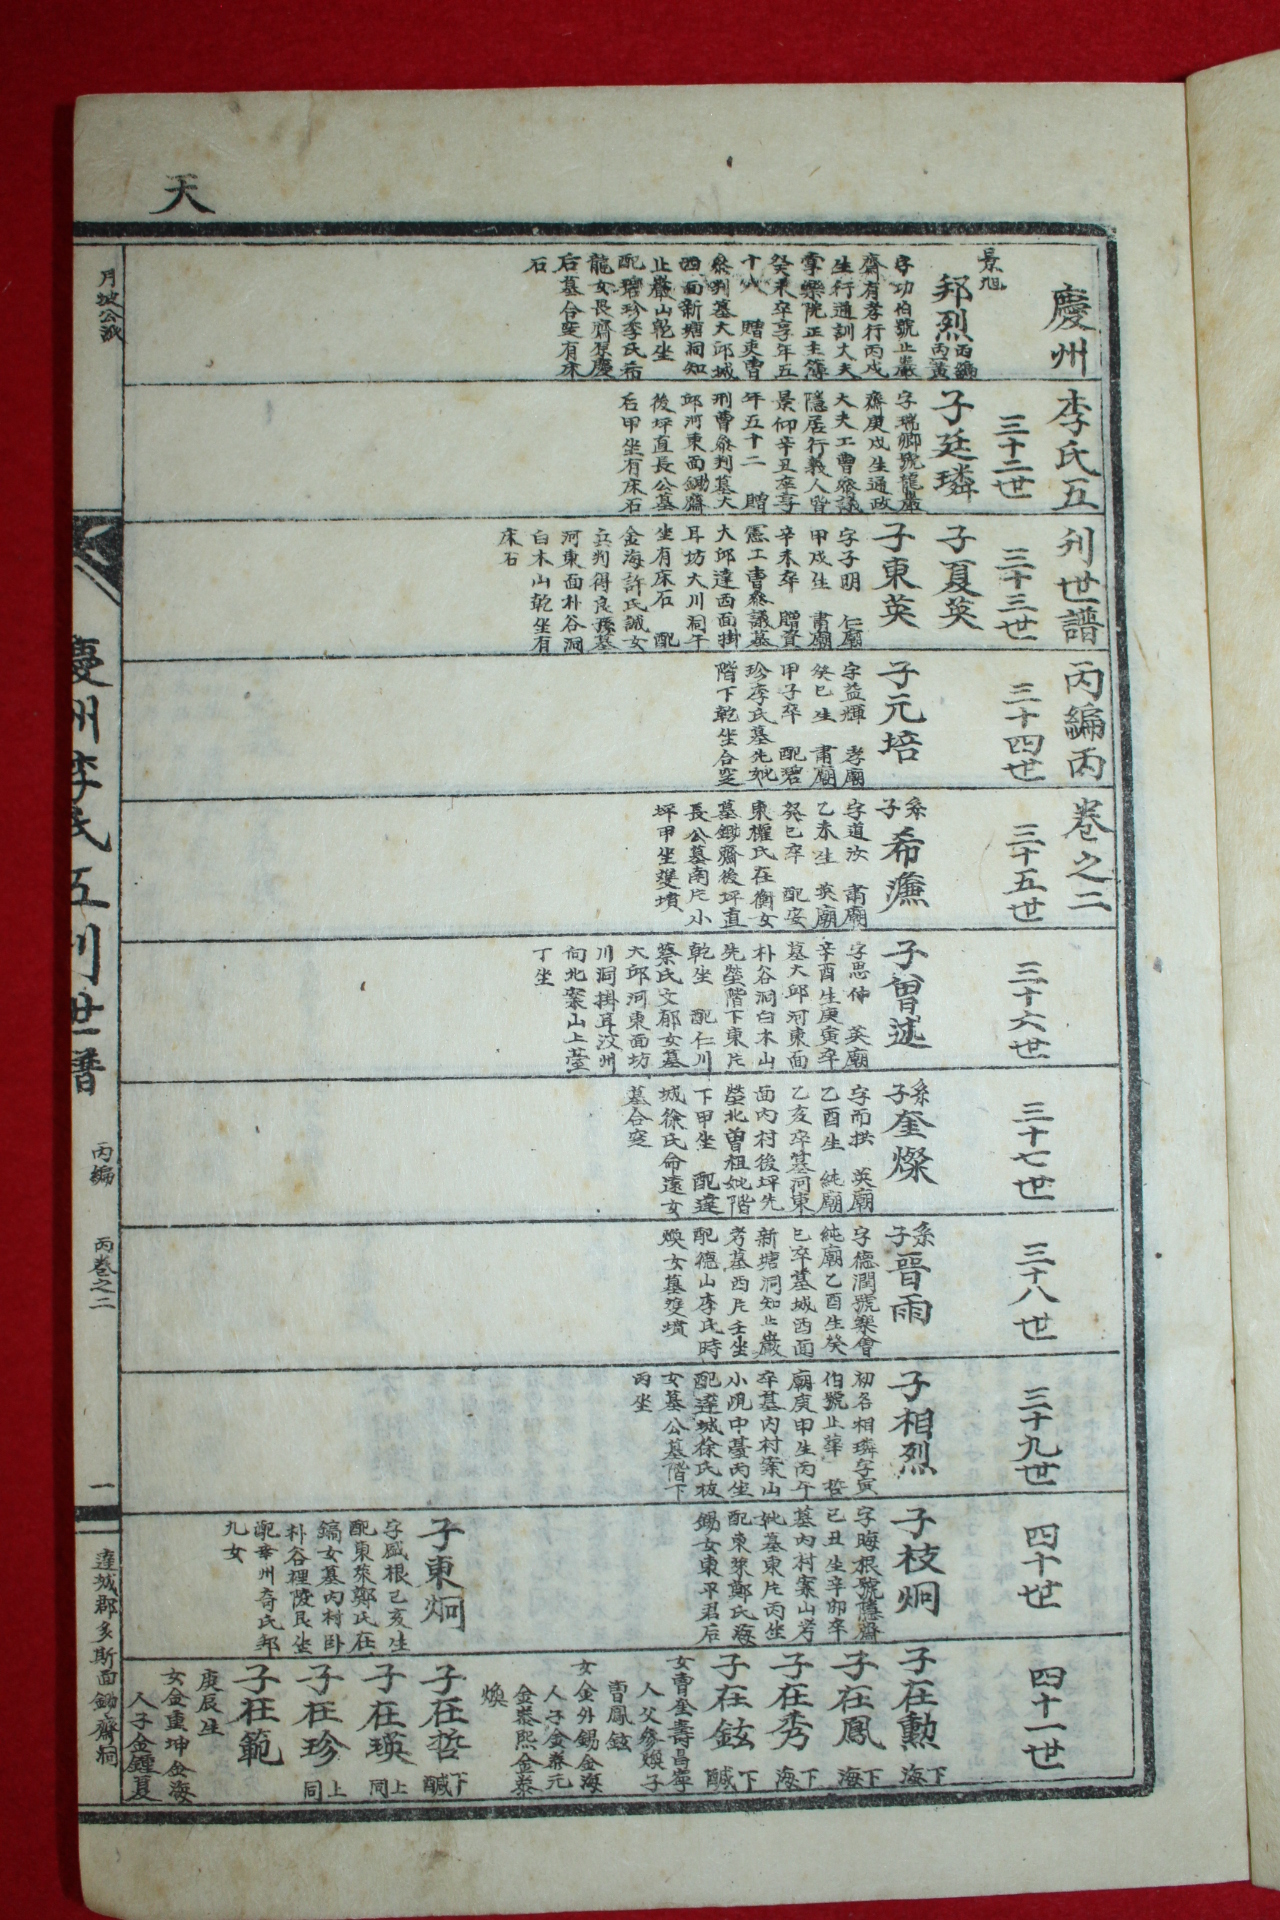 天
慶州李氏五刋世譜 丙編丙 卷之二
景旭
邦烈 丙編 丙黃
字功伯號止巖
齋有孝行丙戌
生行通訓大夫
掌樂院正主簿
癸未卒享年五
十八 贈吏曹
參判墓大邱城
西面新塘洞知
止巖山乾坐
配碧珍李氏希
龍女長齊原慶
后墓合窆有床
石
三十二世
子廷璘
字瑞卿號龍巖
齋庚戌生通政
大夫工曹參議
隱居行義人皆
景仰辛丑卒享
年五十二 贈
刑曹參判墓大
邱河東面鋤齋
後坪直長公墓
右甲坐有床石
三十三世
子夏英
子東英
字子明 仁廟
甲戌生 肅廟
辛未卒 贈資
憲工曹參議墓
大邱達西面掛
耳坊大川洞午
坐有床石 配
金海許氏誠女
兵判得良孫墓
河東面朴谷洞
白木山乾坐有
床石
三十四世
子元培
字益輝 孝廟
癸巳生 肅廟
甲子卒 配碧
珍李氏墓先妣
階下乾坐合窆
三十五世
系子 希濂
字道汝 肅廟
乙未生 英廟
癸巳卒 配安
東權氏在衡女
墓鋤齋後坪直
長公墓南片小
坪甲坐雙墳
三十六世
子曾述
字思仲 英廟
辛酉生庚寅卒
墓大邱河東面
朴谷洞白木山
先塋階下東片
乾坐 配仁川
蔡氏文郁女墓
大邱河東面坊
川洞掛耳汶州
向北案山上臺
丁坐
三十七世
系子 奎燦
字而拱 英廟
乙酉生 純廟
乙亥卒墓河東
面內村後坪先
塋北曾祖妣階
下甲坐 配達
城徐氏命遠女
墓合窆
三十八世
系子 晉雨
字德潤號樂會
純廟乙酉生癸
巳卒墓城西面
新塘洞知止巖
考墓西片壬坐
配德山李氏時
煥女墓雙墳
三十九世
子相烈
初名相璘字寅
伯號止華 哲
廟庚申生丙午
卒墓內村案山
小峴中臺丙坐
配達城徐氏枝
女墓公墓階下
丙坐
四十世
子枝炯
字晦根號隱齋
己丑生辛卯卒
墓內村案山考
妣墓東片丙坐
配東萊鄭氏海
錫女東平君后
子東炯
字盛根己亥生
配東萊鄭氏在
鎬女墓內村卧
朴谷裡陵艮坐
配幸州奇氏邦
九女
四十一世
子在勳 下海
子在鳳 下海
子在秀 下海
子在鉉 下鹹
女曺奎壽昌寧
人父參煥子
曺鳳鉉
女金外錫金海
人子金泰元
金泰熙金泰
煥
子在哲 下鹹
子在瑛 上同
子在珍 上同
子在範
庚辰生
女金重坤金海
人子金鍾夏
月城公派
慶州李氏五刋世譜
丙編
丙卷之二
一
達城郡多斯面鋤齋祠